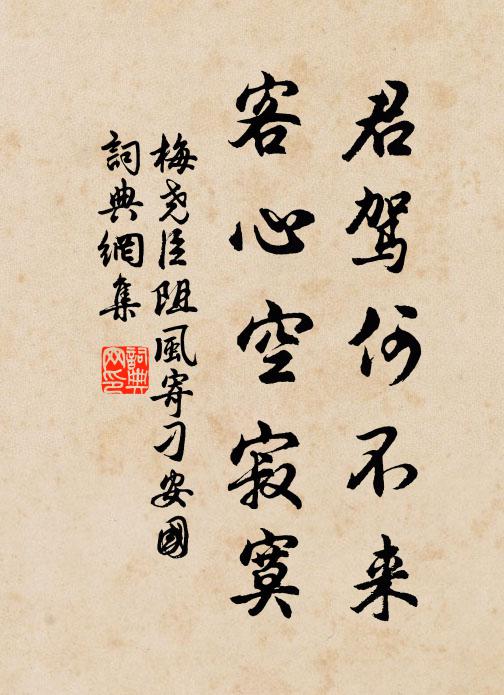 君驾何不来
客心空寂寞
梅尧臣阻風寄刁安國
詞典網集
詞典网印